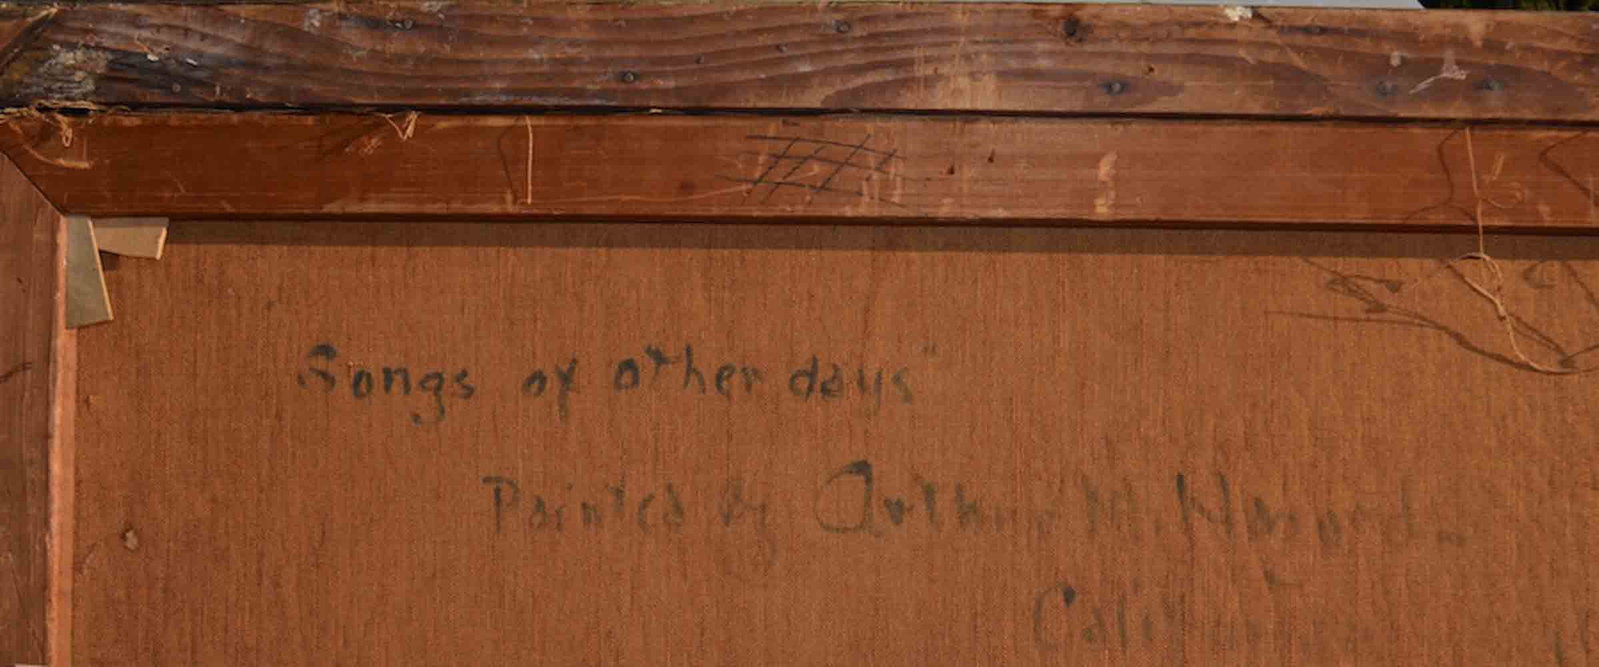 Songs of other days"
Painted by Arthur M. Hazard